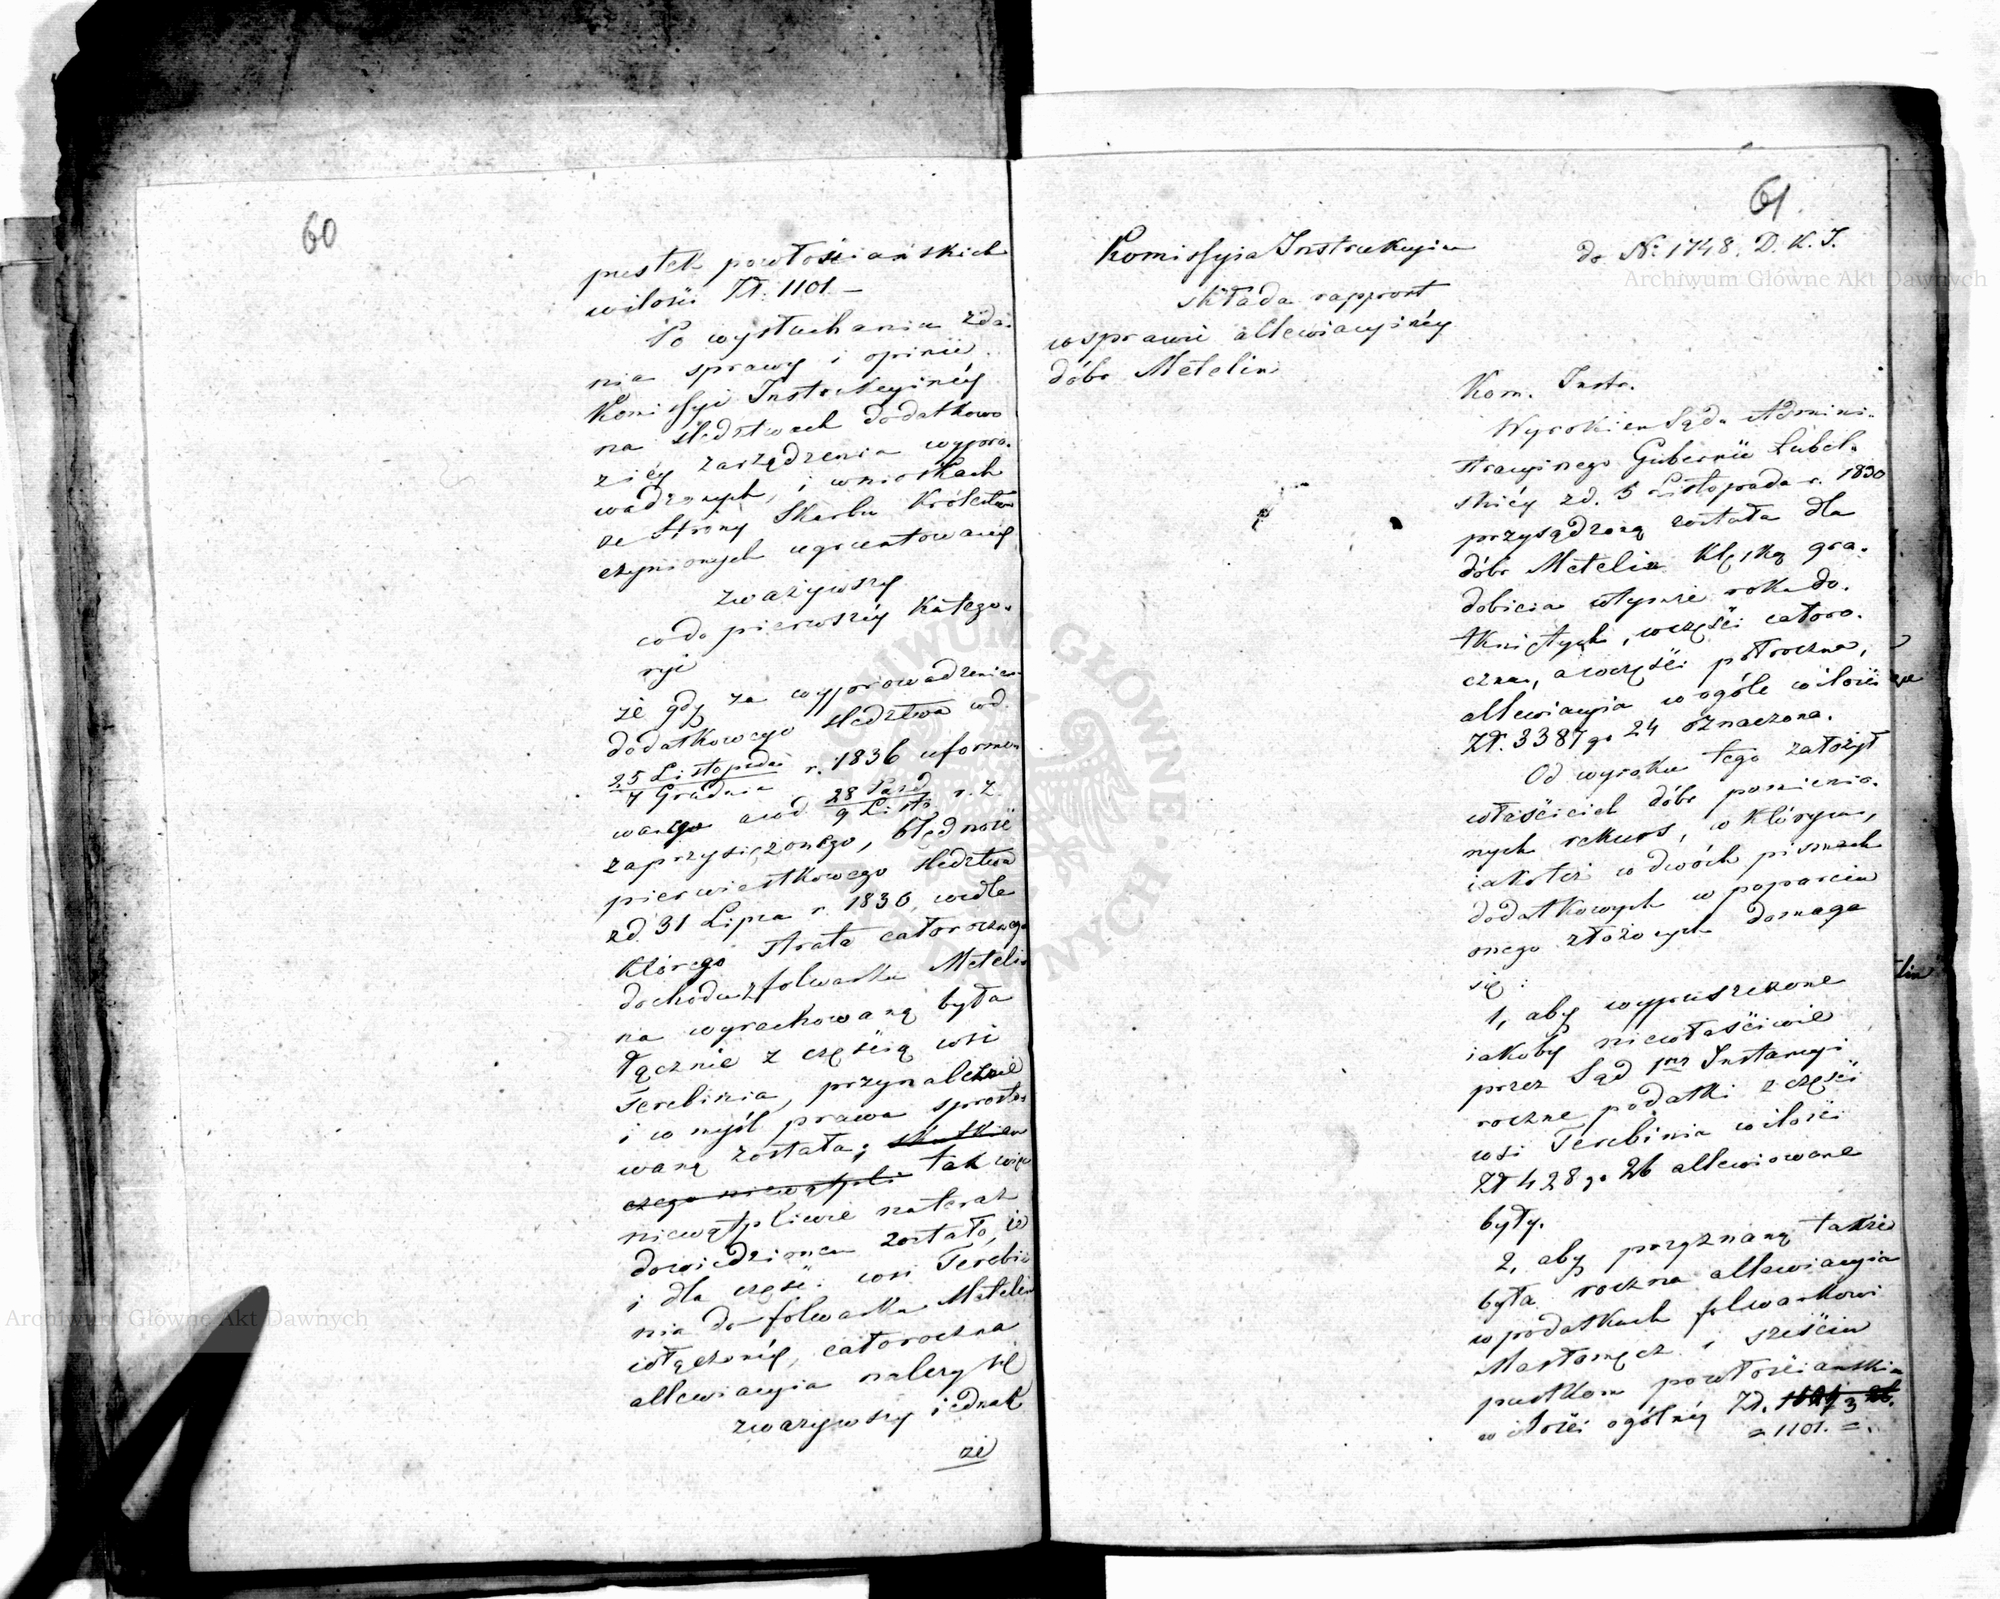 60
pustek powłościańskich
wilości Zł. 1101. —
Po wysłuchaniu zda-
nia sprawy i opinii
Komissyi Instrukcyinéy
na śledztwach dodatkowo
z iéy zarządzenia wypro-
wadzonych, i wnioskach
ze strony Skarbu Królestwa
czynionych ugruntowanéy
zważywszy
co do pierwszéy Katego-
ryi
że gdy za wyprowadzeniem
dodatkowego śledztwa wd.
25 Listopada
7 Grudnia r. 1836 uformo
wanego a wd. 28 Paźd
9 List. r. z.
zaprzysiężonego, błędność
pierwiastkowego śledztwa
zd. 31 Lipca r. 1830, wedle
którego strata całorocznego
dochodu z folwarku Meteli
na wyrachowaną była
łącznie z częścią wsi
Terebinia, przynależnie
i w myśl prawa sprosto
waną została; skutkiem
czego niewątpli tak więc
niewątpliwie nateraz
dowiedzionem zostało, iż
i dla części wsi Terebi
nia do folwarku Metelin
włączonéy, całoroczna
allewiacyia należy się
zważywszy iednak
że
61.
Komissyia Instrukcyina
składa rapport
w sprawie allewiacyinéy
dóbr Metelin
do No 1748. D. K. I.
Kom. Instr.
Wyrokiem Sądu Admini-
stracyinego Gubernii Lubel-
skiéy zd. 5 Listopada r. 1830
przysądzoną została dla
dóbr Metelin klęską gra-
dobicia w tymże roku do-
tkniętych, w części całoro-
czna, a w części półroczna,
allewiacyia w ogóle wilości
Zł. 3387 gr 24 oznaczona.
Od wyroku tego założył
właściciel dóbr pomienio-
nych rekurs, w którym,
iakoteż w dwóch pismach
dodatkowych w poparciu
onego złożonych domaga
się:
1, aby wypuszczone
iakoby niewłaściwie
przez Sąd 1ey Instancyi
roczne podatki z części
wsi Terebinia wilości
Zł 428 gr 26 allewiowane
były.
2, aby przyznaną także
była roczna allewiacyia
w podatkach folwarkowi
Masłomęcz i sześciu
pustkom powłościańskim
w ilości ogólnéy Zł.
= 1101. =.